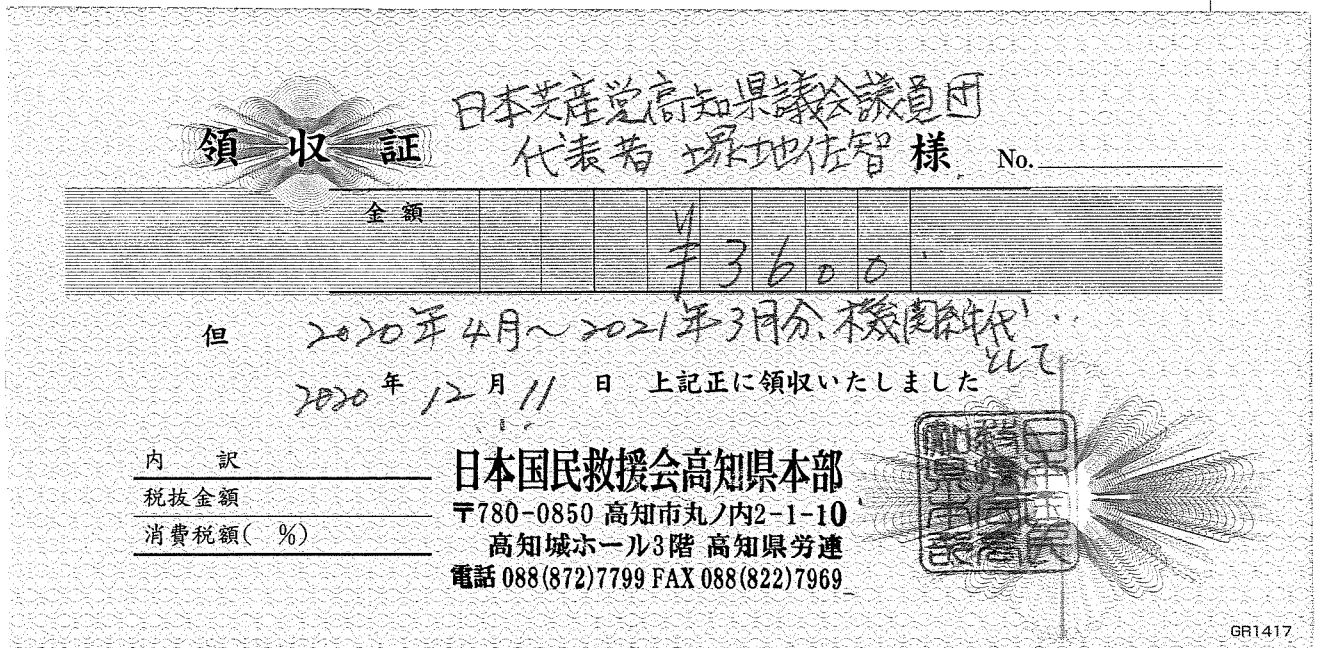 日本共産党高知県議会議員団
領収証
代表者 塚地佐智 様 No.
金額
¥3600
但 2020年4月～2021年3月分、機関紙代として
2020年12月11日 上記正に領収いたしました
内訳
税抜金額
消費税額( %)
日本国民救援会高知県本部
〒780-0850 高知市丸ノ内2-1-10
高知城ホール3階 高知県労連
電話 088(872)7799 FAX 088(822)7969
GR1417